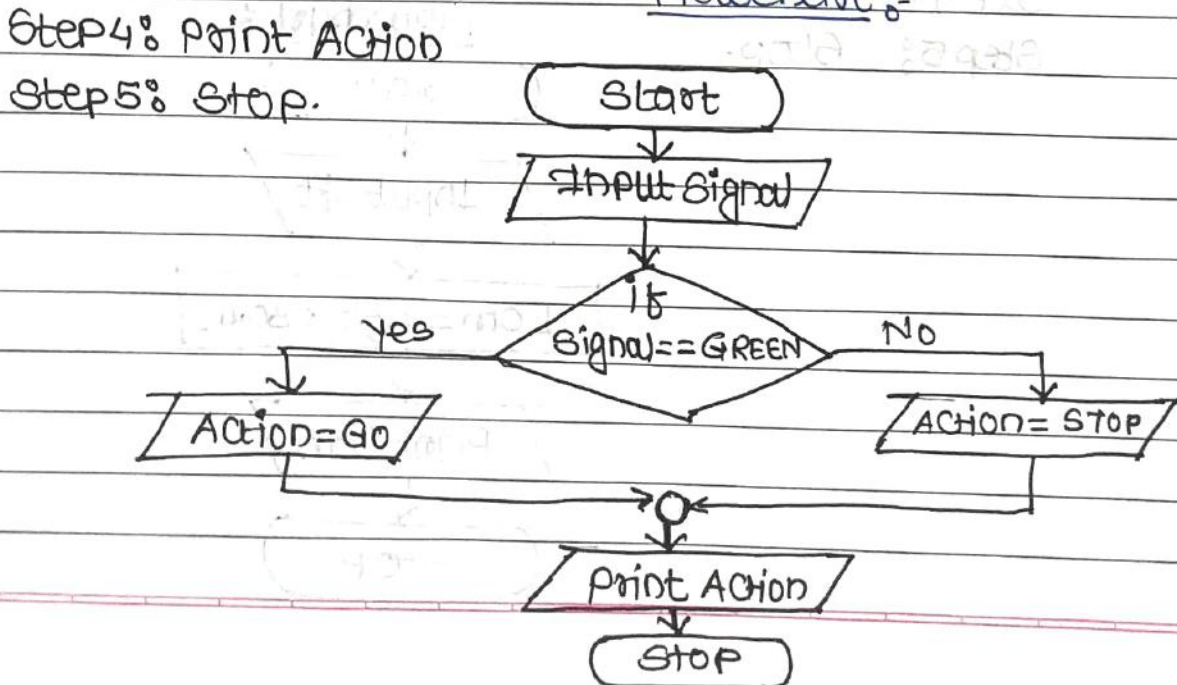 Flowchart :-
Step4: Print Action
Step5: Stop.
Start
Input Signal
if
Signal==GREEN
Yes
No
Action=GO
Action= STOP
Print Action
Stop